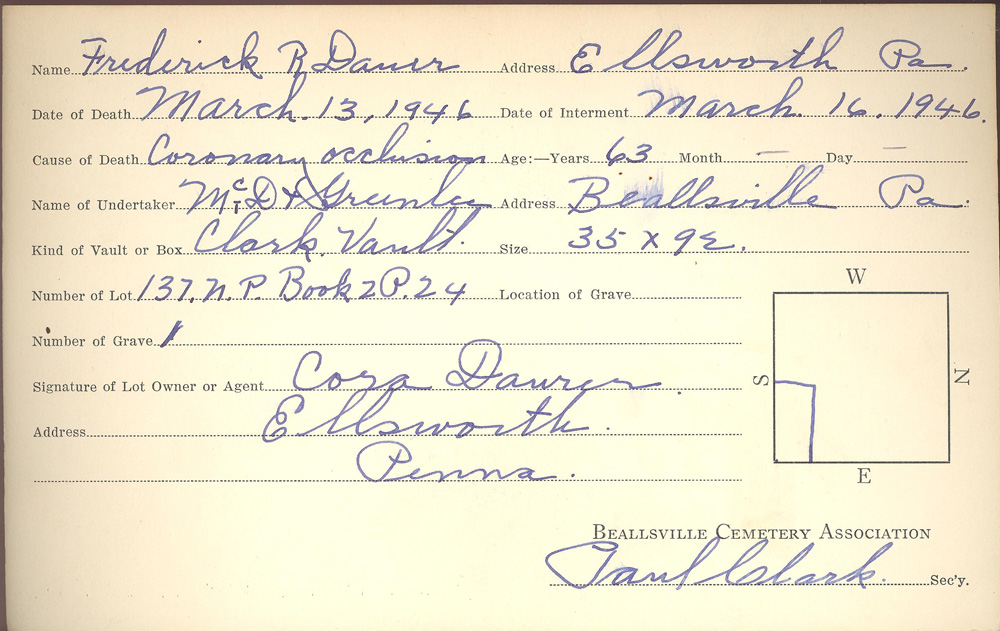 Name Frederick R Dauer Address Ellsworth Pa.
Date of Death March. 13, 1946 Date of Interment March. 16. 1946.
Cause of Death Coronary occlusion Age:—Years 63 Month — Day —
Name of Undertaker McD & Greenlee Address Beallsville Pa.
Kind of Vault or Box Clark. Vault. Size 35 x 92.
Number of Lot 137. N. P. Book 2 P. 24 Location of Grave
Number of Grave 1
Signature of Lot Owner or Agent Cora
Address Ellsworth.
Penna.
W
S
N
E
Beallsville Cemetery Association
Paul Clark. Sec'y.